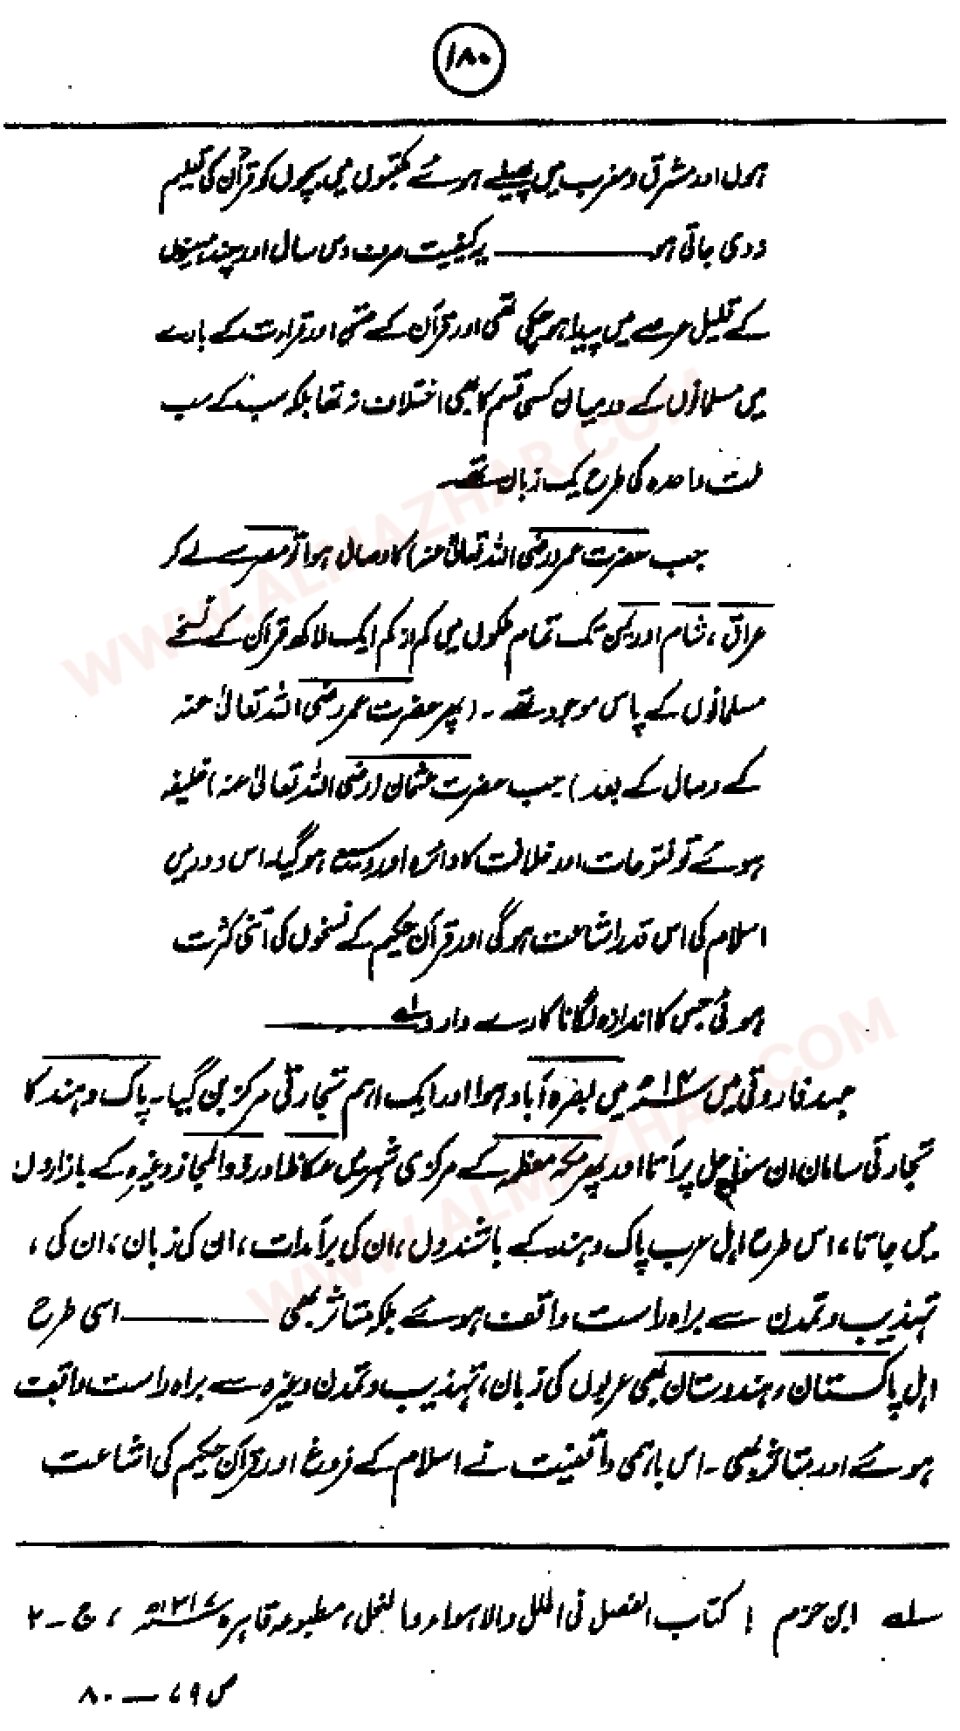 ۱۸۰
ہوں اور مشرق و مغرب میں پھیلے ہوئے مکتبوں میں بچوں کو قرآن کی تعلیم
نہ دی جاتی ہو ــــــــ یہ کیفیت صرف دس سال اور چند مہینوں
کے قلیل عرصے میں پیدا ہو چکی تھی اور قرآن کے متن اور قرارت کے بارے
میں مسلمانوں کے درمیان کسی قسم کا بھی اختلاف نہ تھا بلکہ سب کے سب
ملت واحدہ کی طرح یک زبان تھے۔
جب حضرت عمر (رضی اللہ تعالیٰ عنہ) کا وصال ہوا تو مصر سے لے کر
عراق، شام اور یمن تک تمام ملکوں میں کم از کم ایک لاکھ قرآن کے نسخے
مسلمانوں کے پاس موجود تھے۔ (پھر حضرت عمر رضی اللہ تعالیٰ عنہ
کے وصال کے بعد) جب حضرت عثمان (رضی اللہ تعالیٰ عنہ) خلیفہ
ہوئے تو فتوحات اور خلافت کا دائرہ اور وسیع ہو گیا۔ اس دور میں
اسلام کی اس قدر اشاعت ہو گی اور قرآن حکیم کے نسخوں کی اتنی کثرت
ہوئی جس کا اندازہ لگانا کارے دارد ۱ے ــــــــ
عہد فاروقی میں ۱۴ھ میں بصرہ آباد ہوا اور ایک اہم تجارتی مرکز بن گیا۔ پاک و ہند کا
تجارتی سامان ان سواحل پر آتا اور پھر مکہ معظمہ کے مرکزی شہر میں عکاظ اور ذوالمجاز وغیرہ کے بازاروں
میں جاتا، اس طرح اہل عرب پاک و ہند کے باشندوں، ان کی برآمدات، ان کی زبان، ان کی،
تہذیب و تمدن سے براہ راست واقف ہوئے بلکہ متاثر بھی ــــــــ اسی طرح
اہل پاکستان و ہندوستان بھی عربوں کی زبان، تہذیب و تمدن وغیرہ سے براہ راست واقف
ہوئے اور متاثر بھی۔ اس باہمی واقفیت نے اسلام کے فروغ اور قرآن حکیم کی اشاعت
۱ے ابن حزم : کتاب الفصل فی الملل والاہواء والنحل، مطبوعہ قاہرہ ۱۳۱۷ھ، ج-۲
ص ۷۹ــ۸۰
WWW.ALMAZHAR.COM
WWW.ALMAZHAR.COM